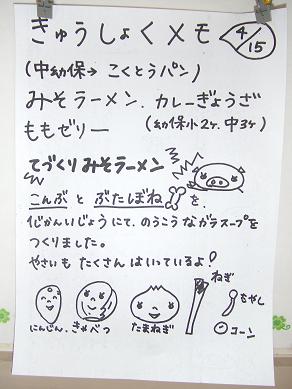 きゅうしょくメモ 4/15
(中幼保→ こくとうパン)
みそラーメン、カレーぎょうざ
ももゼリー (幼保小2ヶ、中3ヶ)
てづくりみそラーメン
こんぶとぶたぼねを、
6じかんいじょうにて、のうこうながらスープを
つくりました。
やさいもたくさんはいっているよ!
にんじん、きゃべつ たまねぎ ねぎ もやし
コーン